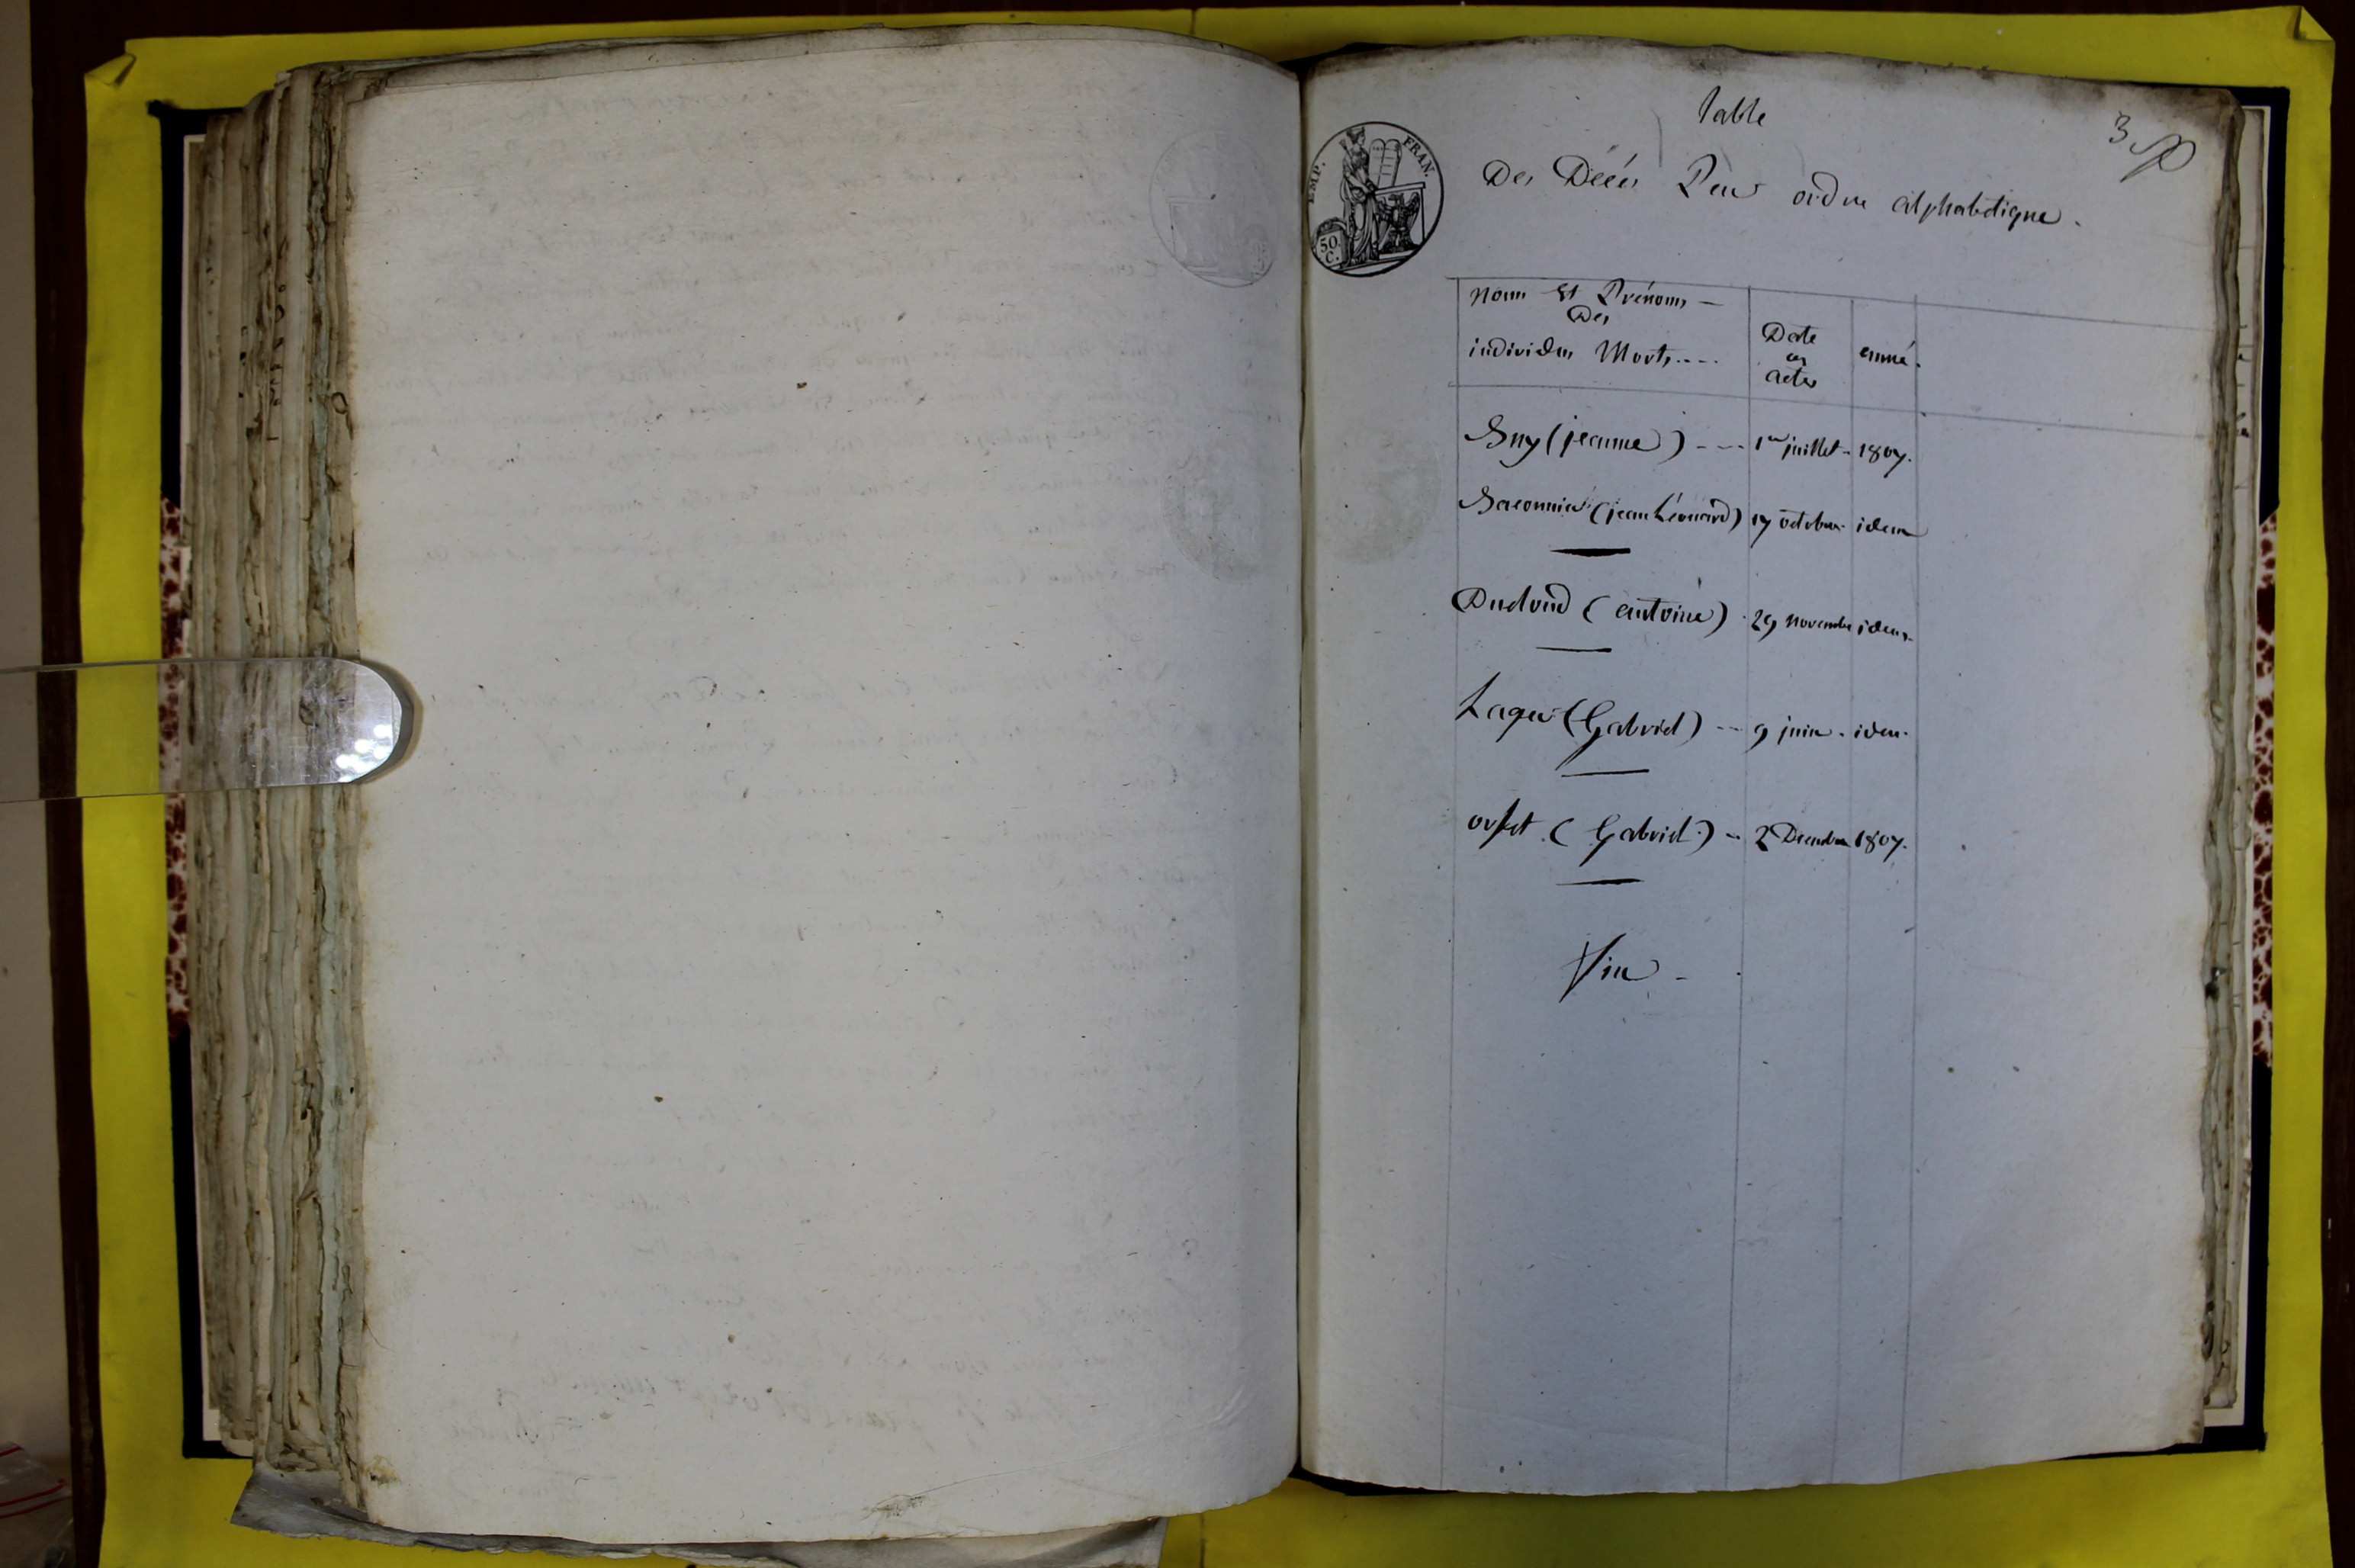 Table
3
EMP. FRAN.
50 C.
Des Décés Par ordre alphabetique.
Noms Et Prénoms
Des
individus Morts....
Date
des
actes
année.
Buy (jeanne) --- 1er juillet - 1807.
Baconnier (jean Léonard) 17 octobre idem
Duclond (antoine) 29 novembre idem
Laque (Gabriel) -- 9 juin - idem
orset (Gabriel) - 2 Decembre 1807.
Fin -